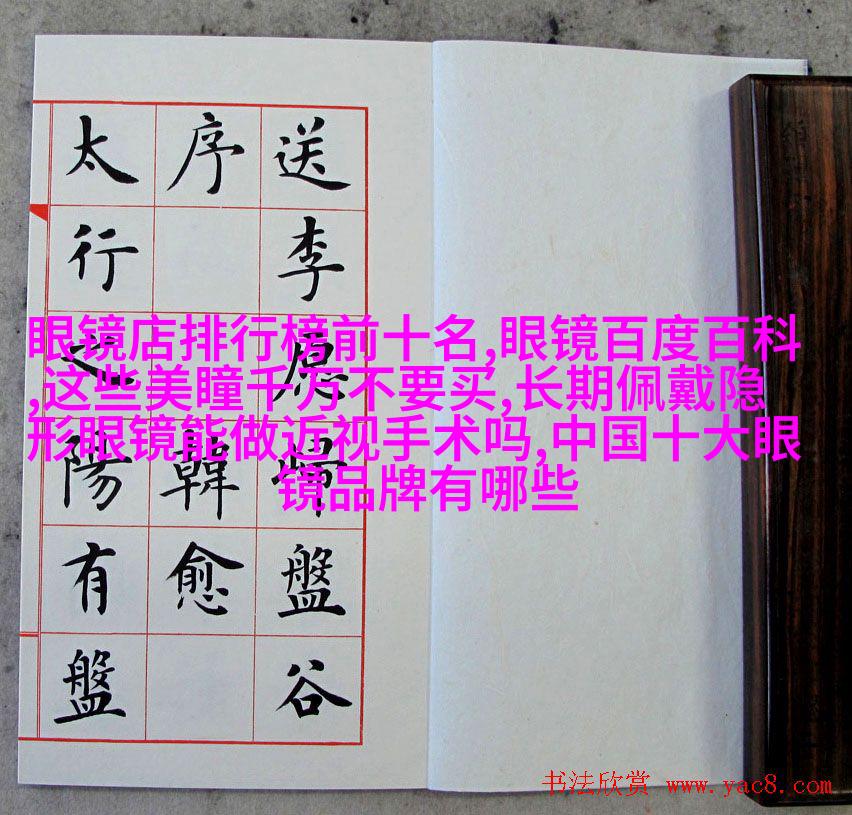 送李愿歸盤谷
序韓愈
太行之陽有盤
眼镜店排行榜前十名,眼镜百度百科
,这些美瞳千万不要买,长期佩戴隐
形眼镜能做近视手术吗,中国十大眼
镜品牌有哪些
书法欣赏 www.yac8.com